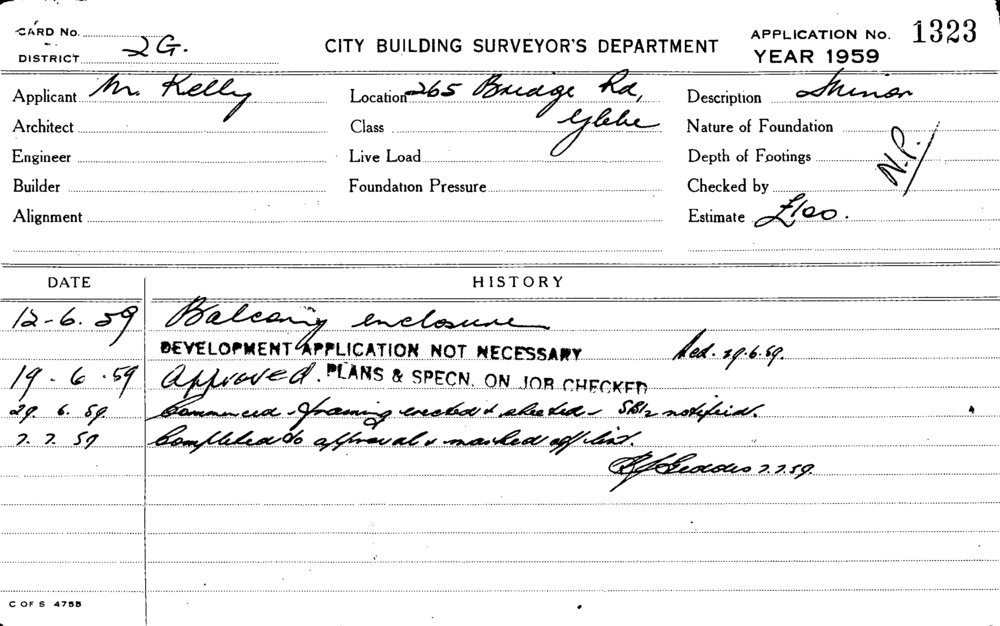 CARD No.
DISTRICT 2G.
CITY BUILDING SURVEYOR'S DEPARTMENT
APPLICATION No. 1323
YEAR 1959
Applicant Mr. Kelly
Location 265 Bridge Rd,
Description Minor
Architect
Class Glebe
Nature of Foundation
Engineer
Live Load
Depth of Footings
N.P.
Builder
Foundation Pressure
Checked by
Alignment
Estimate £100.
DATE HISTORY
12-6.59 Balcony enclosure
DEVELOPMENT APPLICATION NOT NECESSARY Red. 29.6.59.
19.6.59 Approved. PLANS & SPECN. ON JOB CHECKED
29.6.59. Commenced - framing erected & sheeted - notified.
7.7.59 Completed to approval & marked off list.
Geddes 7.7.59.
C OF S 475B